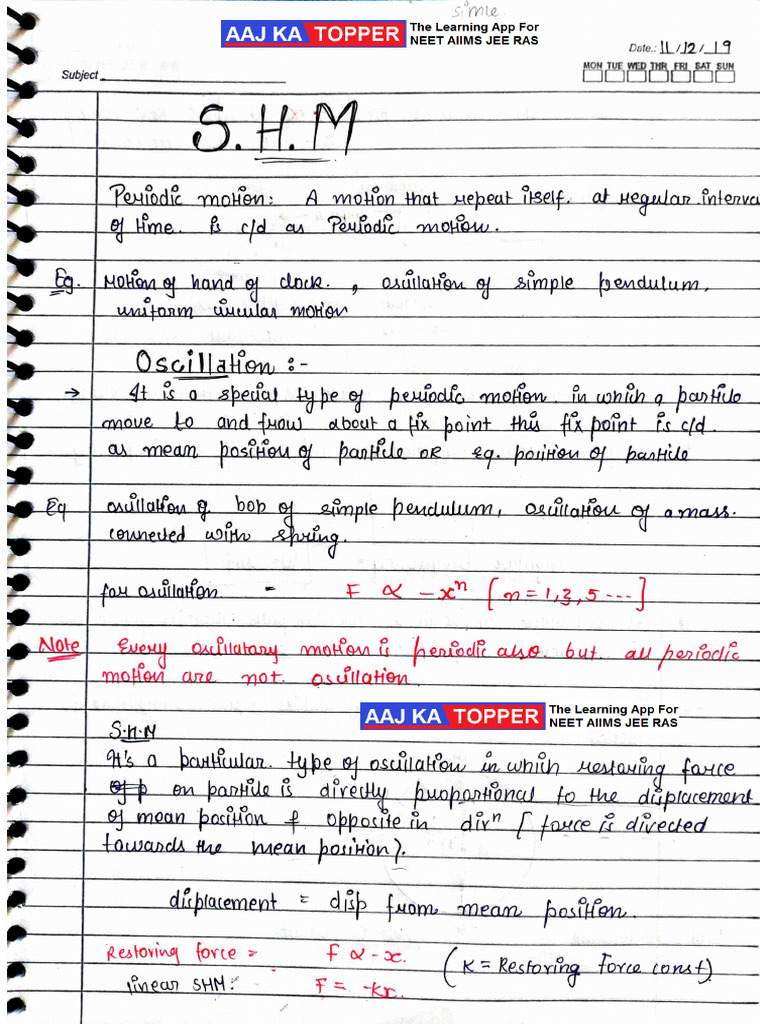 simle
AAJ KA TOPPER The Learning App For
NEET AIIMS JEE RAS
Date.: 11/12/19
Subject
MON TUE WED THR FRI SAT SUN
S.H.M
Periodic motion: A motion that repeat itself. at regular interva
of time. is c/d as Periodic motion.
Eg. Motion of hand of clock. , oscillation of simple pendulum,
uniform circular motion
Oscillation :-
→ It is a special type of periodic motion in which a particle
move to and frow about a fix point this fix point is c/d.
as mean position of particle OR eq. position of particle
Eq oscillation of bob of simple pendulum, oscillation of a mass.
connected with spring.
for oscillation = F ∝ -xⁿ [n = 1,3,5 ---]
Note Every oscillatory motion is periodic also. but all periodic
motion are not oscillation
AAJ KA TOPPER The Learning App For
NEET AIIMS JEE RAS
S.H.M
It's a particular type of oscillation in which restoring force
of p on particle is directly proportional to the displacement
of mean position & opposite in dirⁿ [force is directed
towards the mean position).
displacement = disp from mean position.
Restoring force = F ∝ -x. (K = Restoring Force const).
linear SHM: F = -kx.